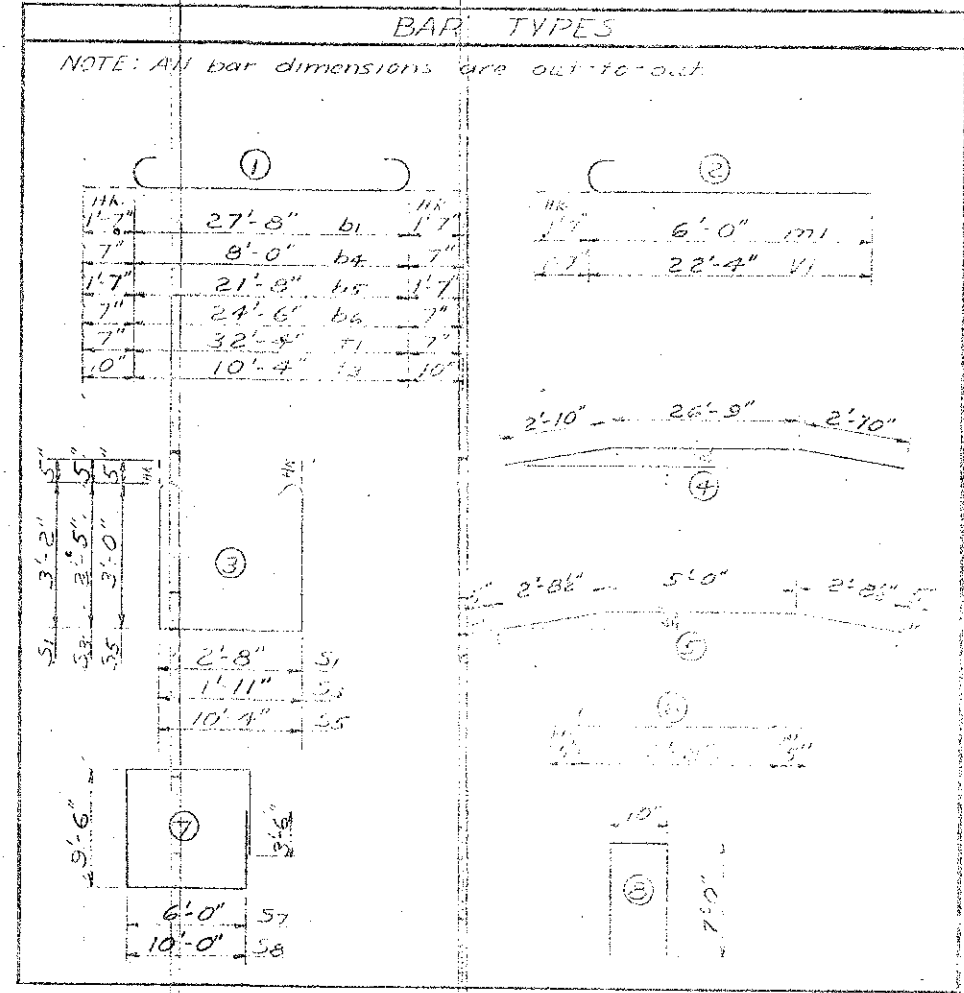 BAR TYPES
NOTE: All bar dimensions are out-to-out
①
HK. HK.
1'-7" 27'-8" b1 1'-7"
7" 8'-0" b4 7"
1'-7" 21'-8" b5 1'-7"
7" 24'-6" b6 7"
7" 32'-4" 7"
10" 10'-4" 10"
②
HK
1'-7" 6'-0" m1
1'-7" 22'-4" V1
2'-10" 26'-9" 2'-10"
④
③
HK HK
5" 5" 5"
3'-2" 3'-5" 3'-0"
S1 S3 S5
2'-8" S1
1'-11" S3
10'-4" S5
5" 2'-8½" 5'-0" 2'-8½" 5"
⑤
⑥
5"
⑦
9'-6" 3'-6"
6'-0" S7
10'-0" S8
10"
⑧
7'-0"